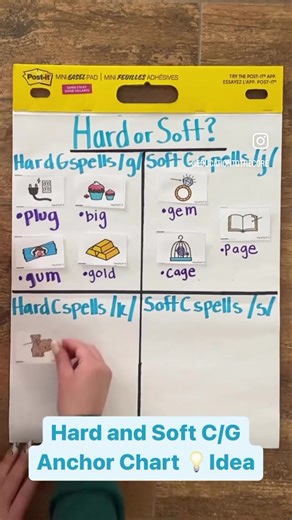 Post-it MINI EASEL PAD / MINI FEUILLES ADHÉSIVES
SUPER STICKY
TRY THE POST-IT® APP.
ESSAYEZ L'APP. POST-IT®
Hard or Soft?
Hard G spells /g/
•plug •big
•gum •gold
Soft G spells /j/
•gem
•page
•cage
Hard C spells /k/
Soft C spells /s/
Hard and Soft C/G
Anchor Chart 💡 Idea